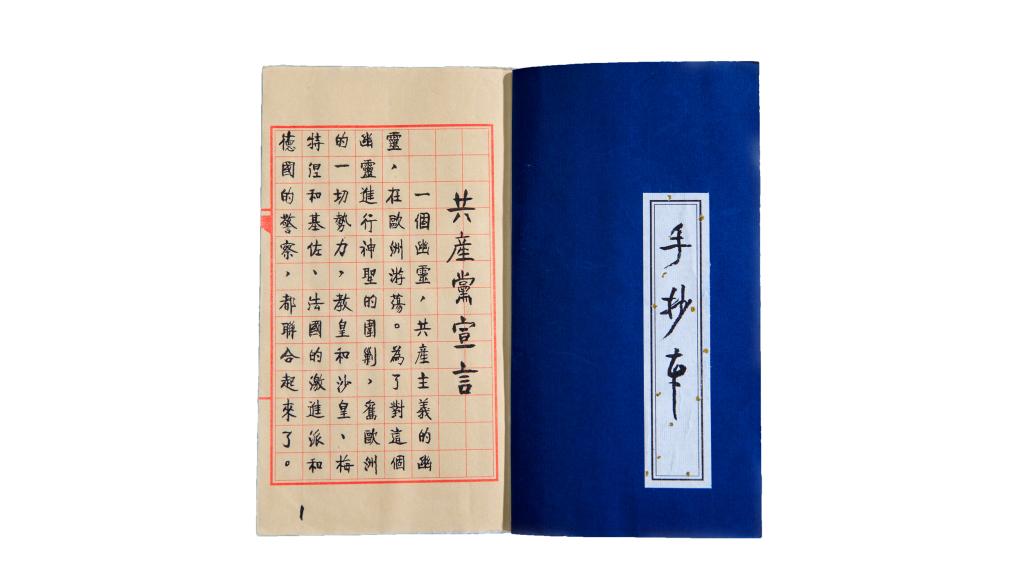 手抄本
共產黨宣言
一個幽靈，共產主義的幽
靈，在歐洲游蕩。為了對這個
幽靈進行神聖的圍剿，舊歐洲
的一切勢力，教皇和沙皇、梅
特涅和基佐、法國的激進派和
德國的警察，都聯合起來了。
1